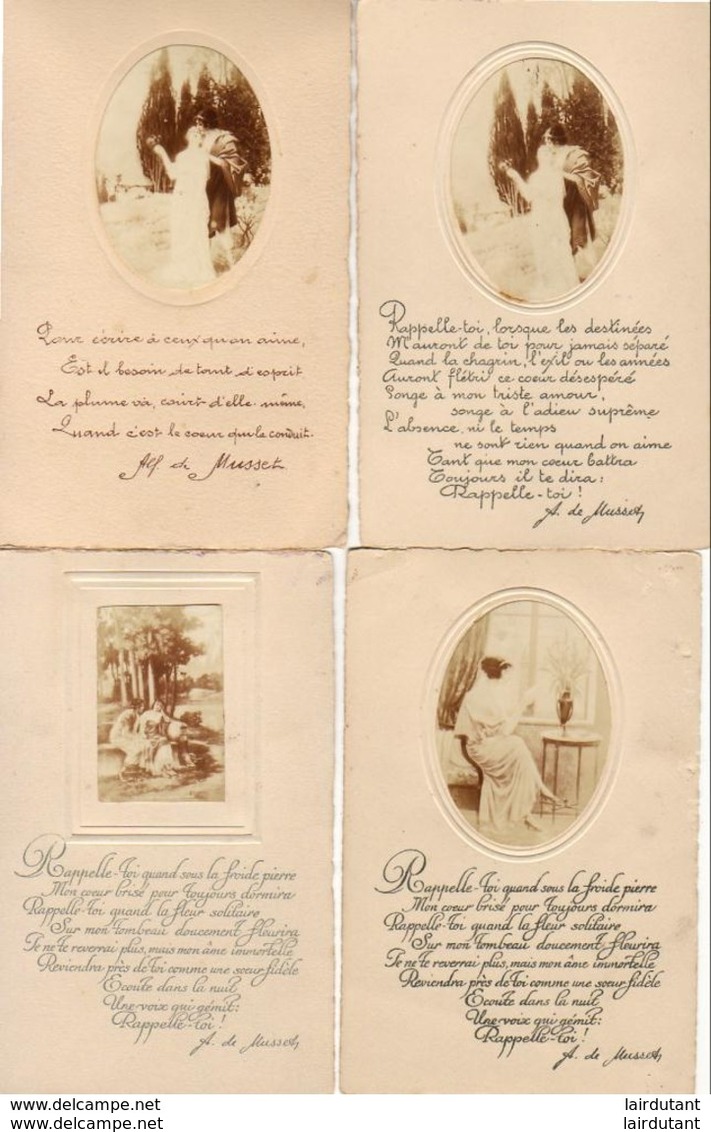 Pour écrire à ceux qu'on aime,
Est il besoin de tant d'esprit
La plume va, court d'elle même,
Quand c'est le coeur qui le conduit.
Alf. de Musset
Rappelle-toi, lorsque les destinées
M'auront de toi pour jamais séparé
Quand la chagrin, l'exil ou les années
Auront flétri ce coeur désespéré
Songe à mon triste amour,
songe à l'adieu suprême
L'absence, ni le temps
ne sont rien quand on aime
Tant que mon coeur battra
Toujours il te dira :
Rappelle-toi !
A. de Musset
Rappelle-Toi quand sous la froide pierre
Mon coeur brisé pour Toujours dormira
Rappelle-Toi quand la fleur solitaire
Sur mon Tombeau doucement fleurira
Je ne te reverrai plus, mais mon âme immortelle
Reviendra près de Toi comme une soeur fidèle
Ecoute dans la nuit
Une voix qui gémit :
Rappelle-Toi !
A. de Musset
Rappelle-Toi quand sous la froide pierre
Mon coeur brisé pour Toujours dormira
Rappelle-Toi quand la fleur solitaire
Sur mon Tombeau doucement fleurira
Je ne te reverrai plus, mais mon âme immortelle
Reviendra près de Toi comme une soeur fidèle
Ecoute dans la nuit
Une voix qui gémit :
Rappelle-Toi !
A. de Musset
www.delcampe.net lairdutant
www.delcampe.net lairdutant